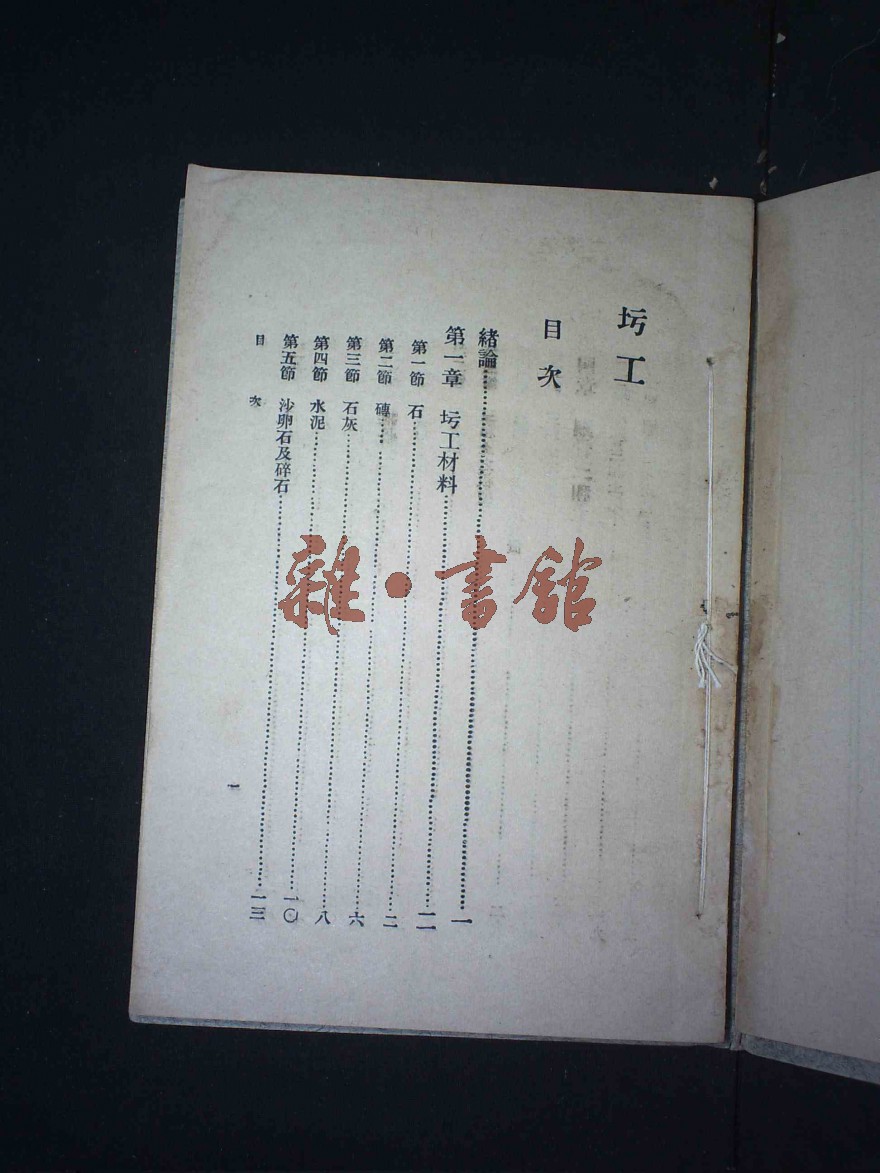 圬工
目次
緒論……………………一
第一章 圬工材料……………………二
第一節 石……………………二
第二節 磚……………………六
第三節 石灰……………………八
第四節 水泥……………………一〇
第五節 沙卵石及碎石……………………一三
目次 一
雜·書館